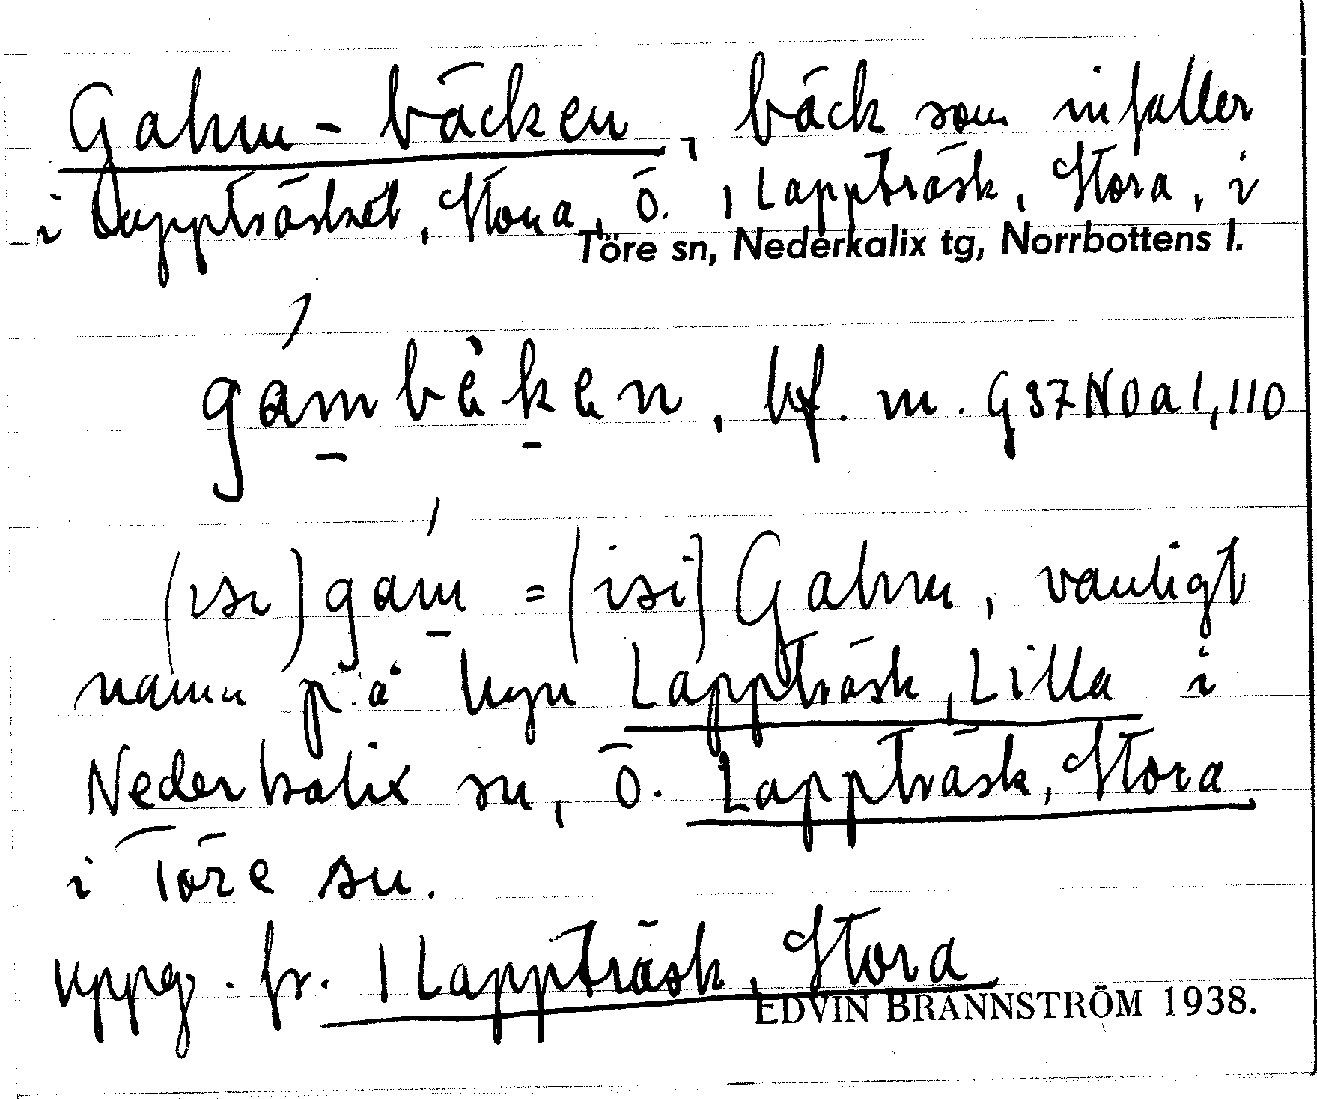 Gahm-bäcken, bäck som infaller
i Lappträsket, Stora, ö. 1 Lappträsk, Stora, i
Töre sn, Nederkalix tg, Norrbottens l.
gámbèken, bf. m. G 37 N0a1,110
(isi) gám = (isi) Gahm, vanligt
namn på byn Lappträsk, Lilla i
Nederkalix sn, ö. Lappträsk, Stora
i Töre sn.
uppg. fr. 1 Lappträsk, Stora
EDVIN BRÄNNSTRÖM 1938.